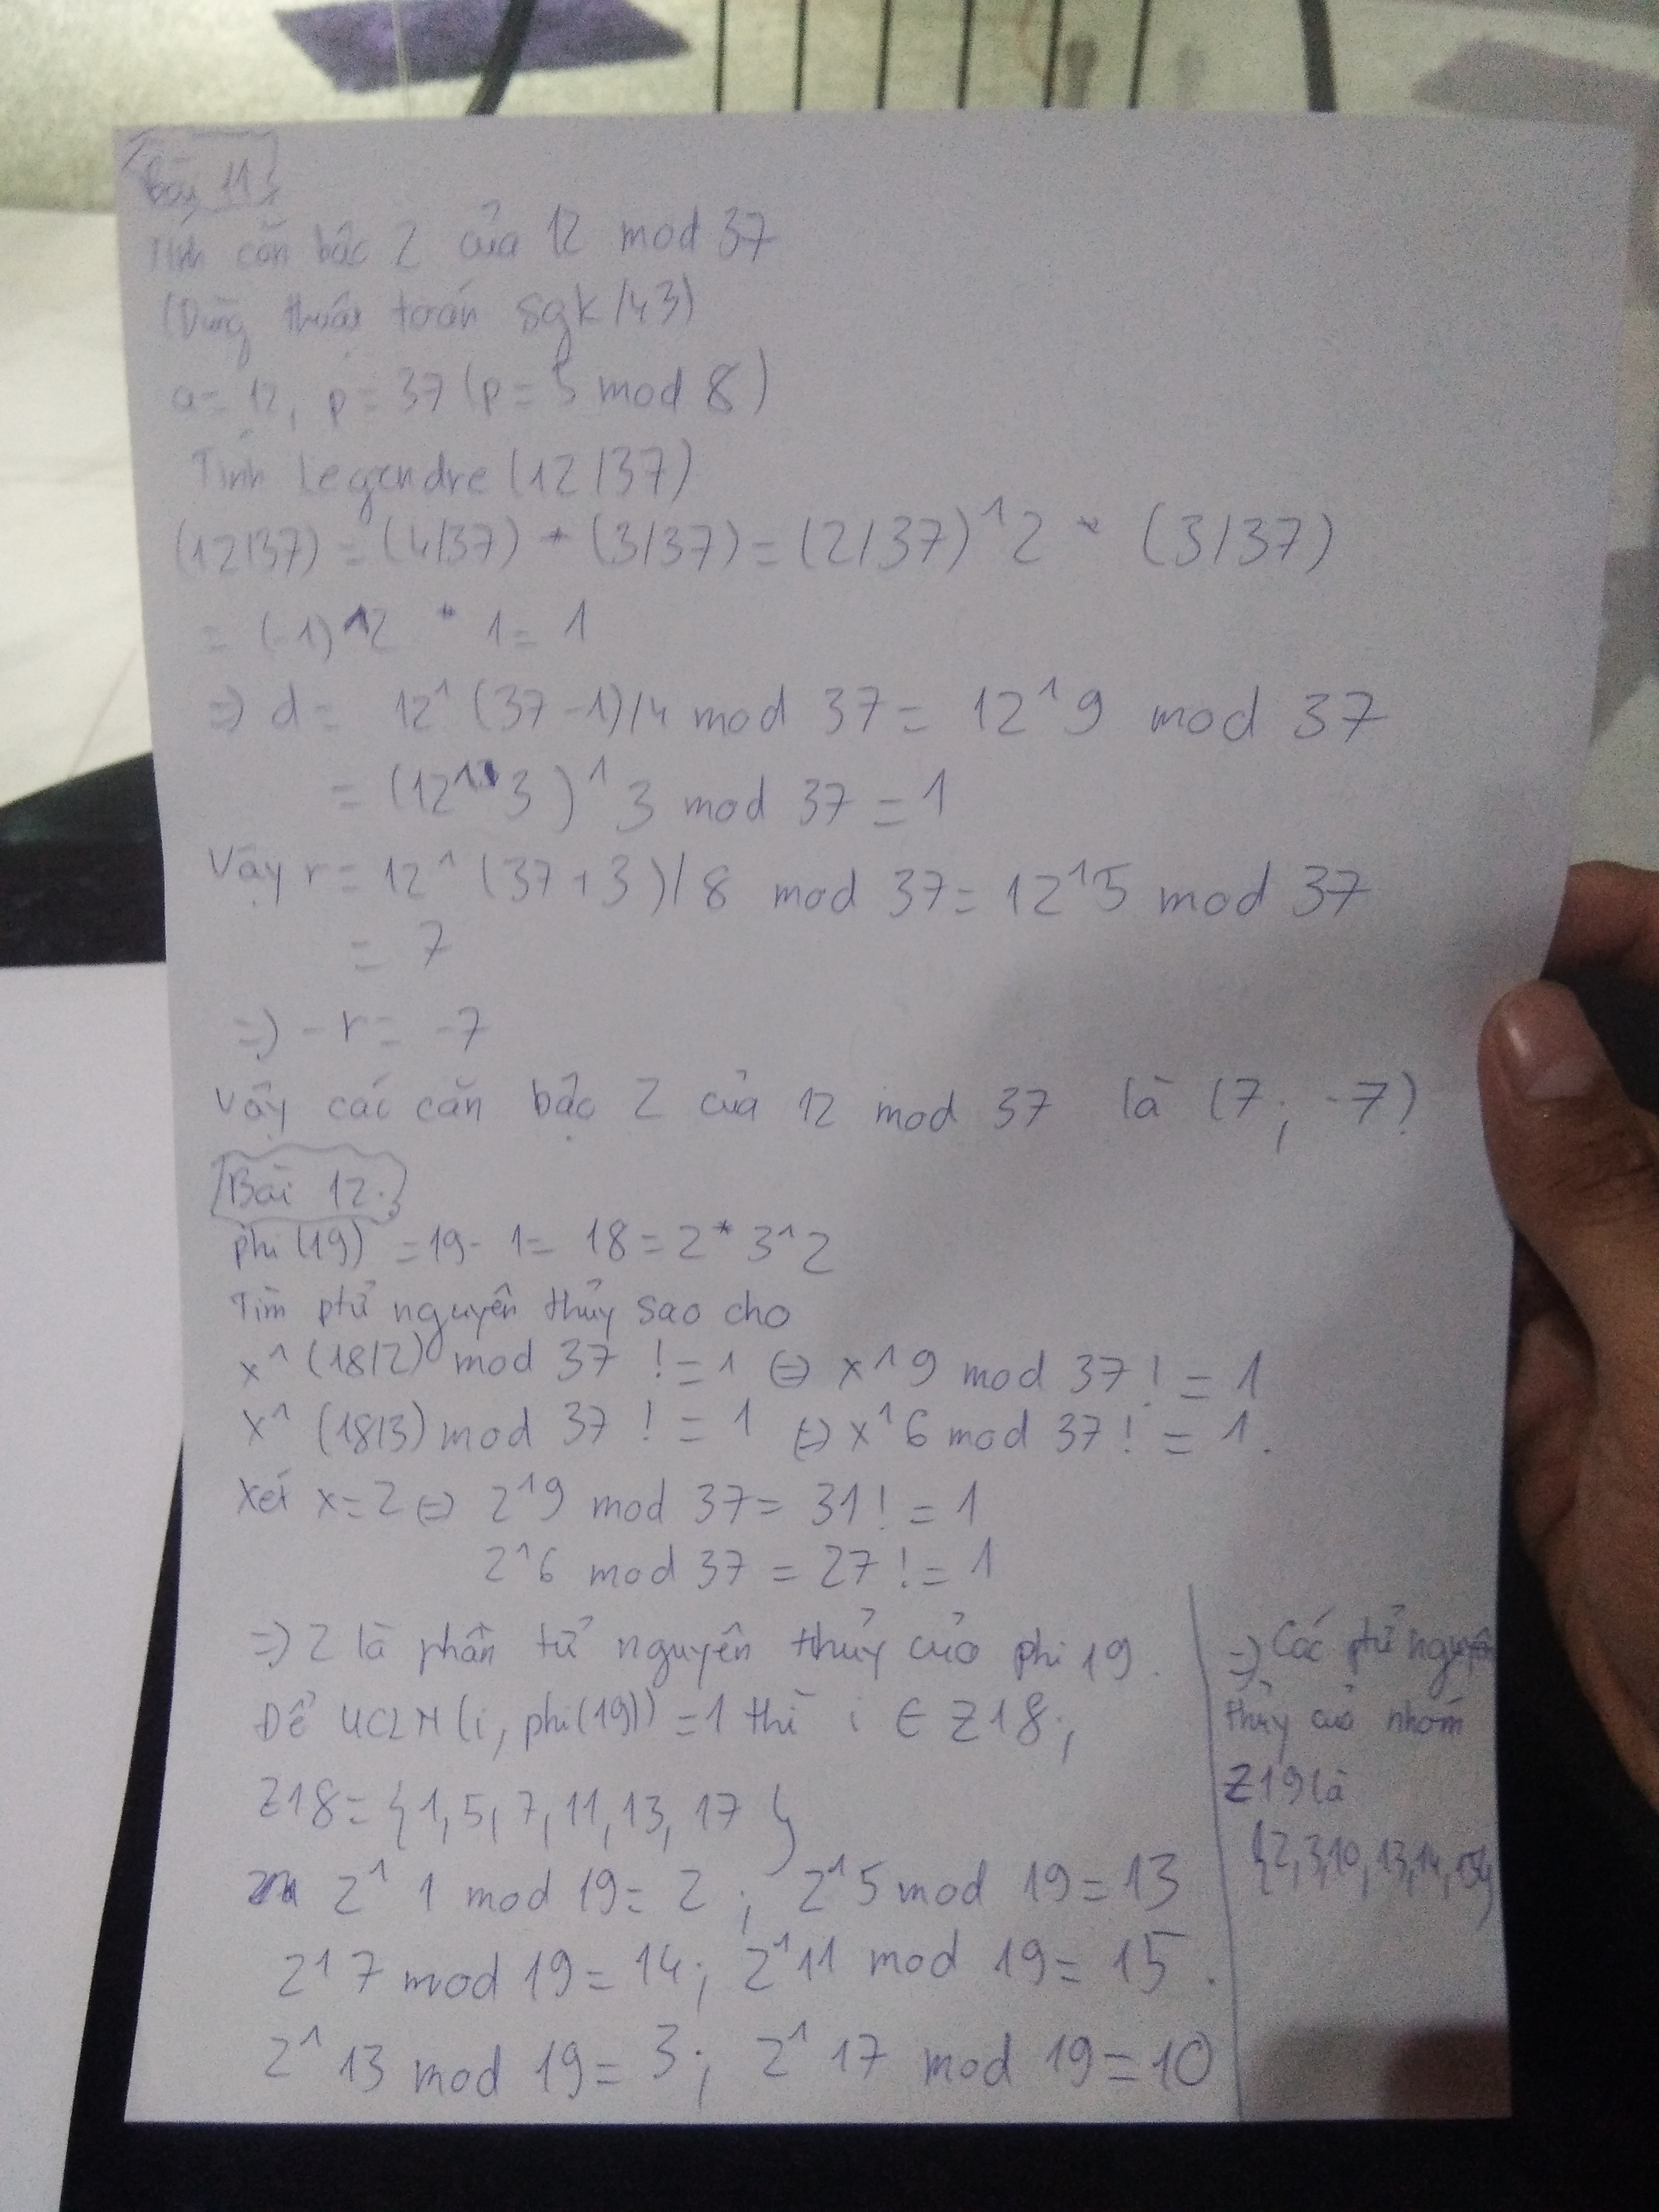 Bài 11
Tính căn bậc 2 của 12 mod 37
(Dùng thuật toán sgk/43)
a = 12, p = 37 (p = 5 mod 8)
Tính Legendre (12/37)
(12/37) = (4/37) * (3/37) = (2/37)^2 * (3/37)
= (-1)^2 * 1 = 1
=> d = 12^(37-1)/4 mod 37 = 12^9 mod 37
= (12^3)^3 mod 37 = 1
Vậy r = 12^(37+3)/8 mod 37 = 12^5 mod 37
= 7
=> -r = -7
Vậy các căn bậc 2 của 12 mod 37 là (7; -7)
Bài 12.
phi(19) = 19 - 1 = 18 = 2*3^2
Tìm ptử nguyên thủy sao cho
x^(18/2) mod 37 != 1 <=> x^9 mod 37 != 1
x^(18/3) mod 37 != 1 <=> x^6 mod 37 != 1.
Xét x=2 <=> 2^9 mod 37 = 31 != 1
2^6 mod 37 = 27 != 1
=> 2 là phần tử nguyên thủy của phi 19.
Để UCLN(i, phi(19)) = 1 thì i ∈ Z18;
Z18 = {1, 5, 7, 11, 13, 17}
2^1 mod 19 = 2; 2^5 mod 19 = 13
2^7 mod 19 = 14; 2^11 mod 19 = 15.
2^13 mod 19 = 3; 2^17 mod 19 = 10
=> Các ptử nguyên
thủy của nhóm
Z19 là
{2, 3, 10, 13, 14, 15}